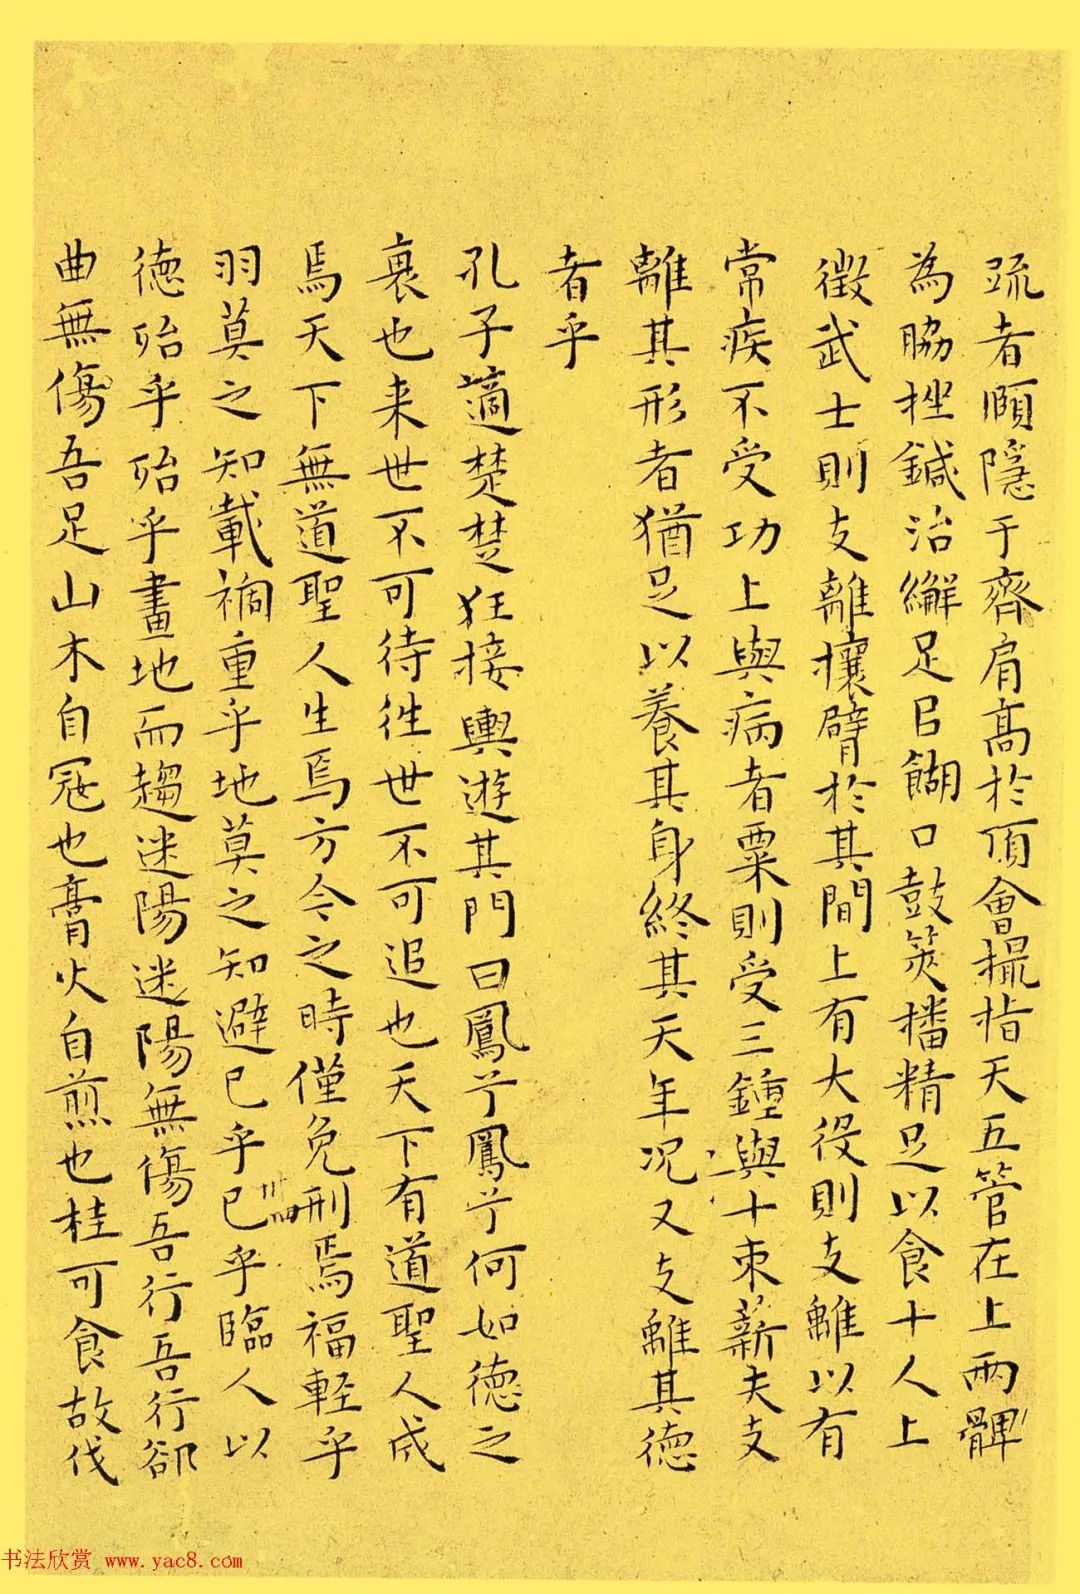 疏者頤隱于齊肩高於頂會撮指天五管在上兩髀
為脇挫鍼治繲足㠯餬口鼓筴播精足以食十人上
徵武士則支離攘臂於其間上有大役則支離以有
常疾不受功上與病者粟則受三鍾與十束薪夫支
離其形者猶足以養其身終其天年况又支離其德
者乎
孔子適楚楚狂接輿遊其門曰鳳兮鳳兮何如德之
衰也来世不可待徃世不可追也天下有道聖人成
焉天下無道聖人生焉方今之時僅免刑焉福輕乎
羽莫之知載禍重乎地莫之知避已乎已乎臨人以
德殆乎殆乎畫地而趨迷陽迷陽無傷吾行吾行郤
曲無傷吾足山木自冦也膏火自煎也桂可食故伐
书法欣赏 www.yac8.com